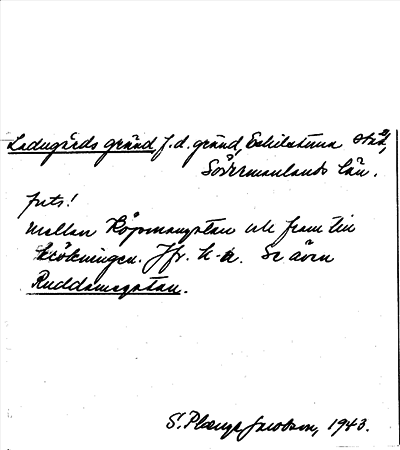 Ladugårds gränd, f.d. gränd, Eskilstuna stad,
Södermanlands län.
mellan Köpmangatan och fram till
krökningen. Jfr. h-a. Se även
Ruddamsgatan.
S. Plænge Jacobson, 1943.